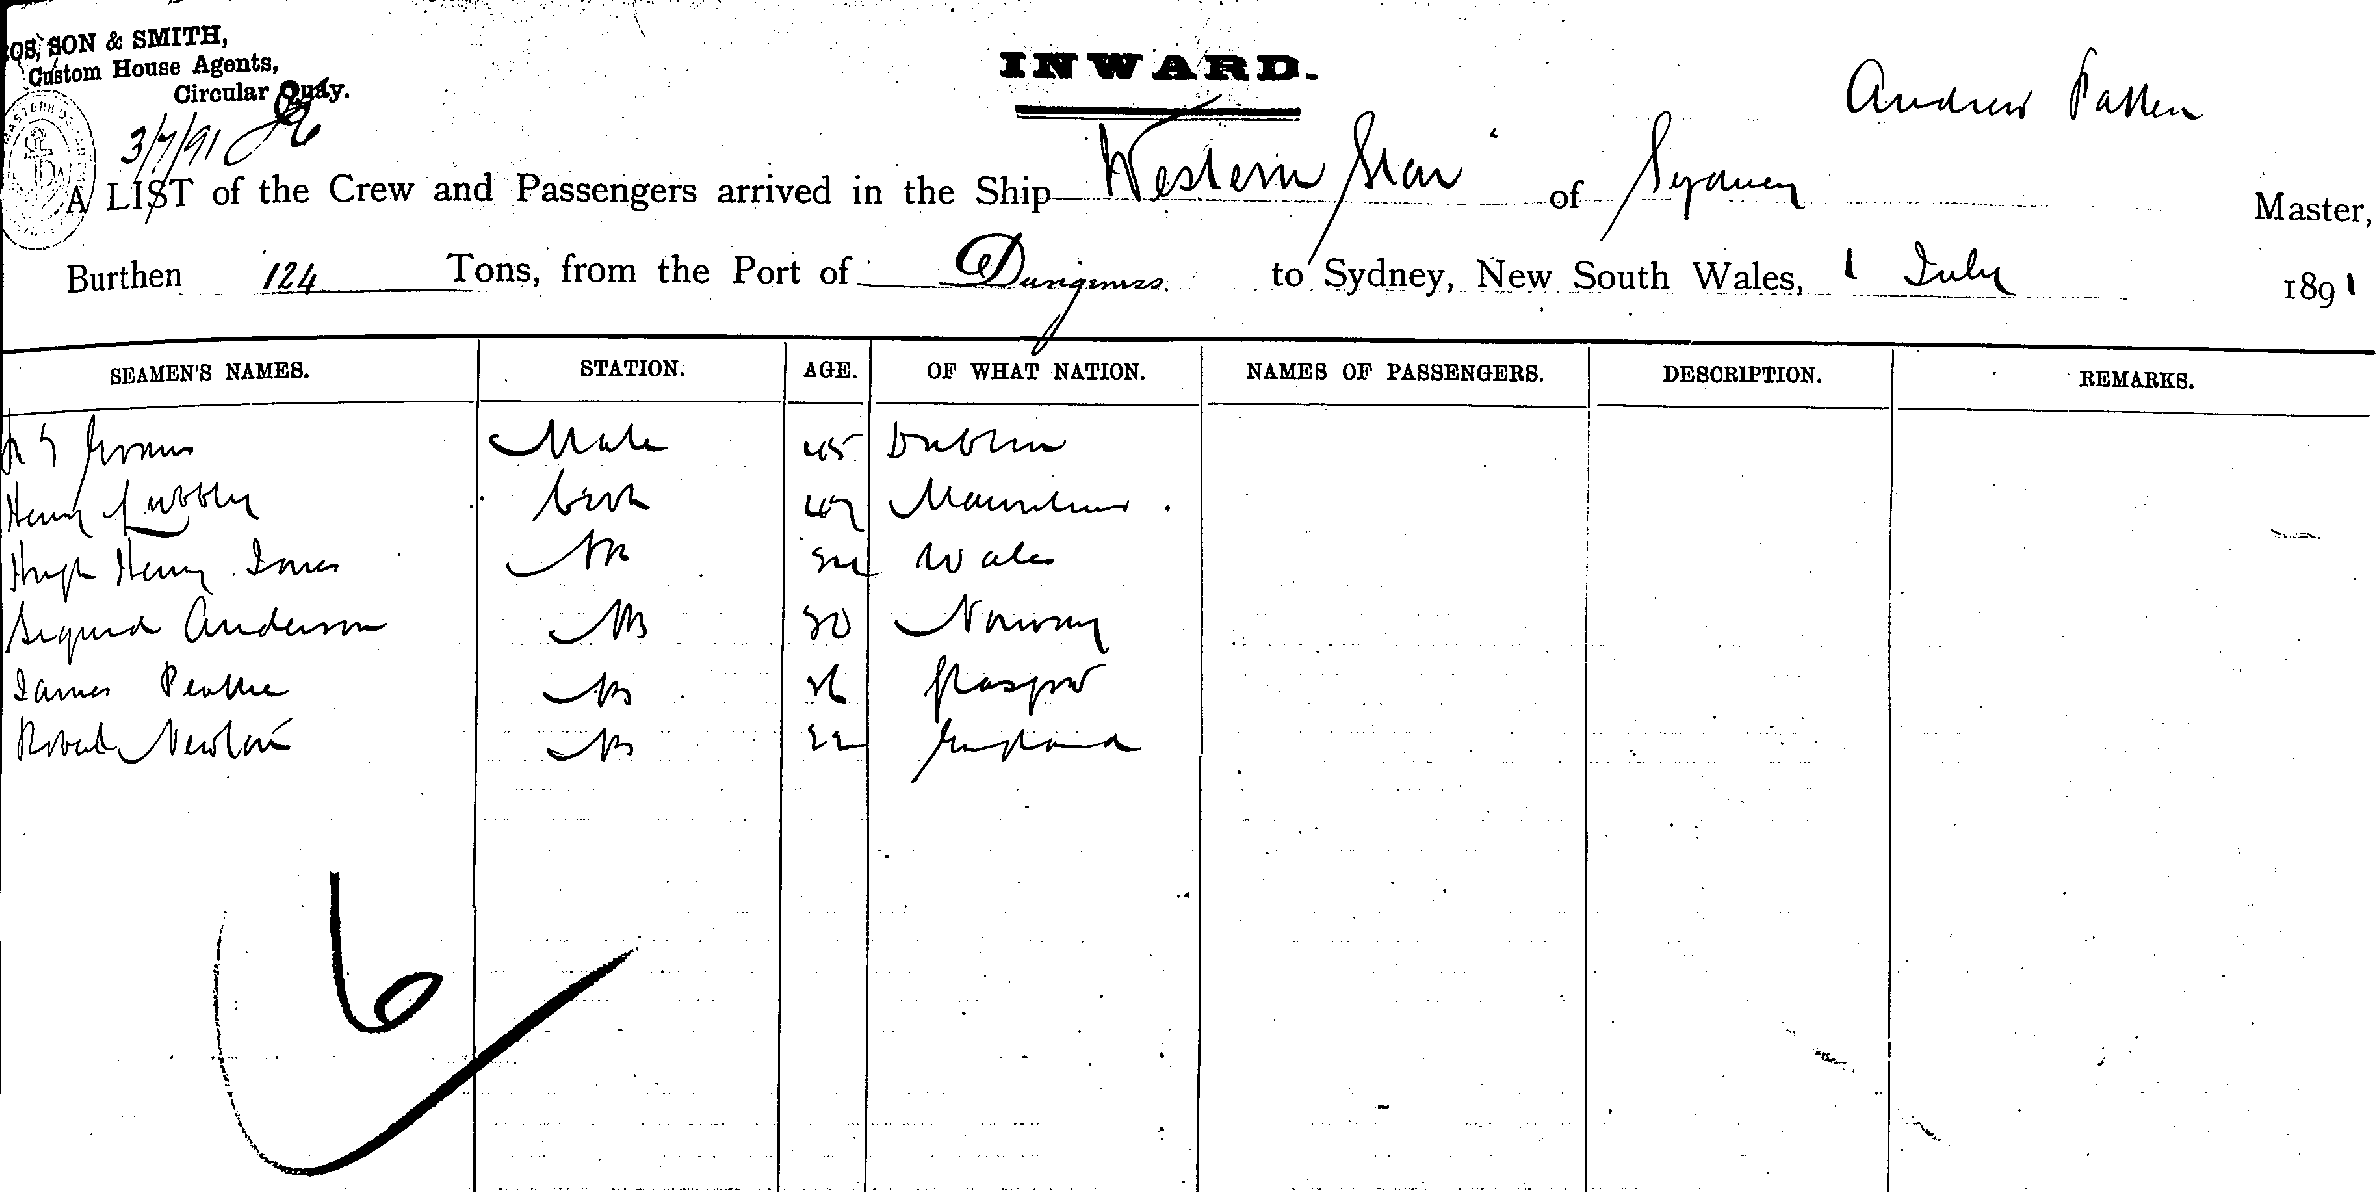 SON & SMITH,
Custom House Agents,
Circular Quay.
INWARD.
Andrew Patten
3/7/91
A LIST of the Crew and Passengers arrived in the Ship Western Star of Sydney Master,
Burthen 124 Tons, from the Port of Dungeness to Sydney, New South Wales, 1 July 1891
SEAMEN'S NAMES. STATION. AGE. OF WHAT NATION. NAMES OF PASSENGERS. DESCRIPTION. REMARKS.
Mate 45 Dublin
Henry Cook Mauritius
Hugh Henry Jones AB Wales
Sigurd Anderson AB 30 Norway
James AB 36 Glasgow
Robert Newton AB 22 England
6